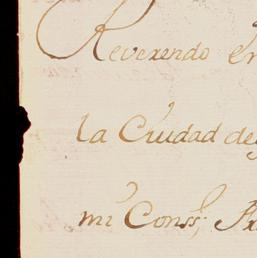 Reverendo en
la Ciudad de
mi Conss;